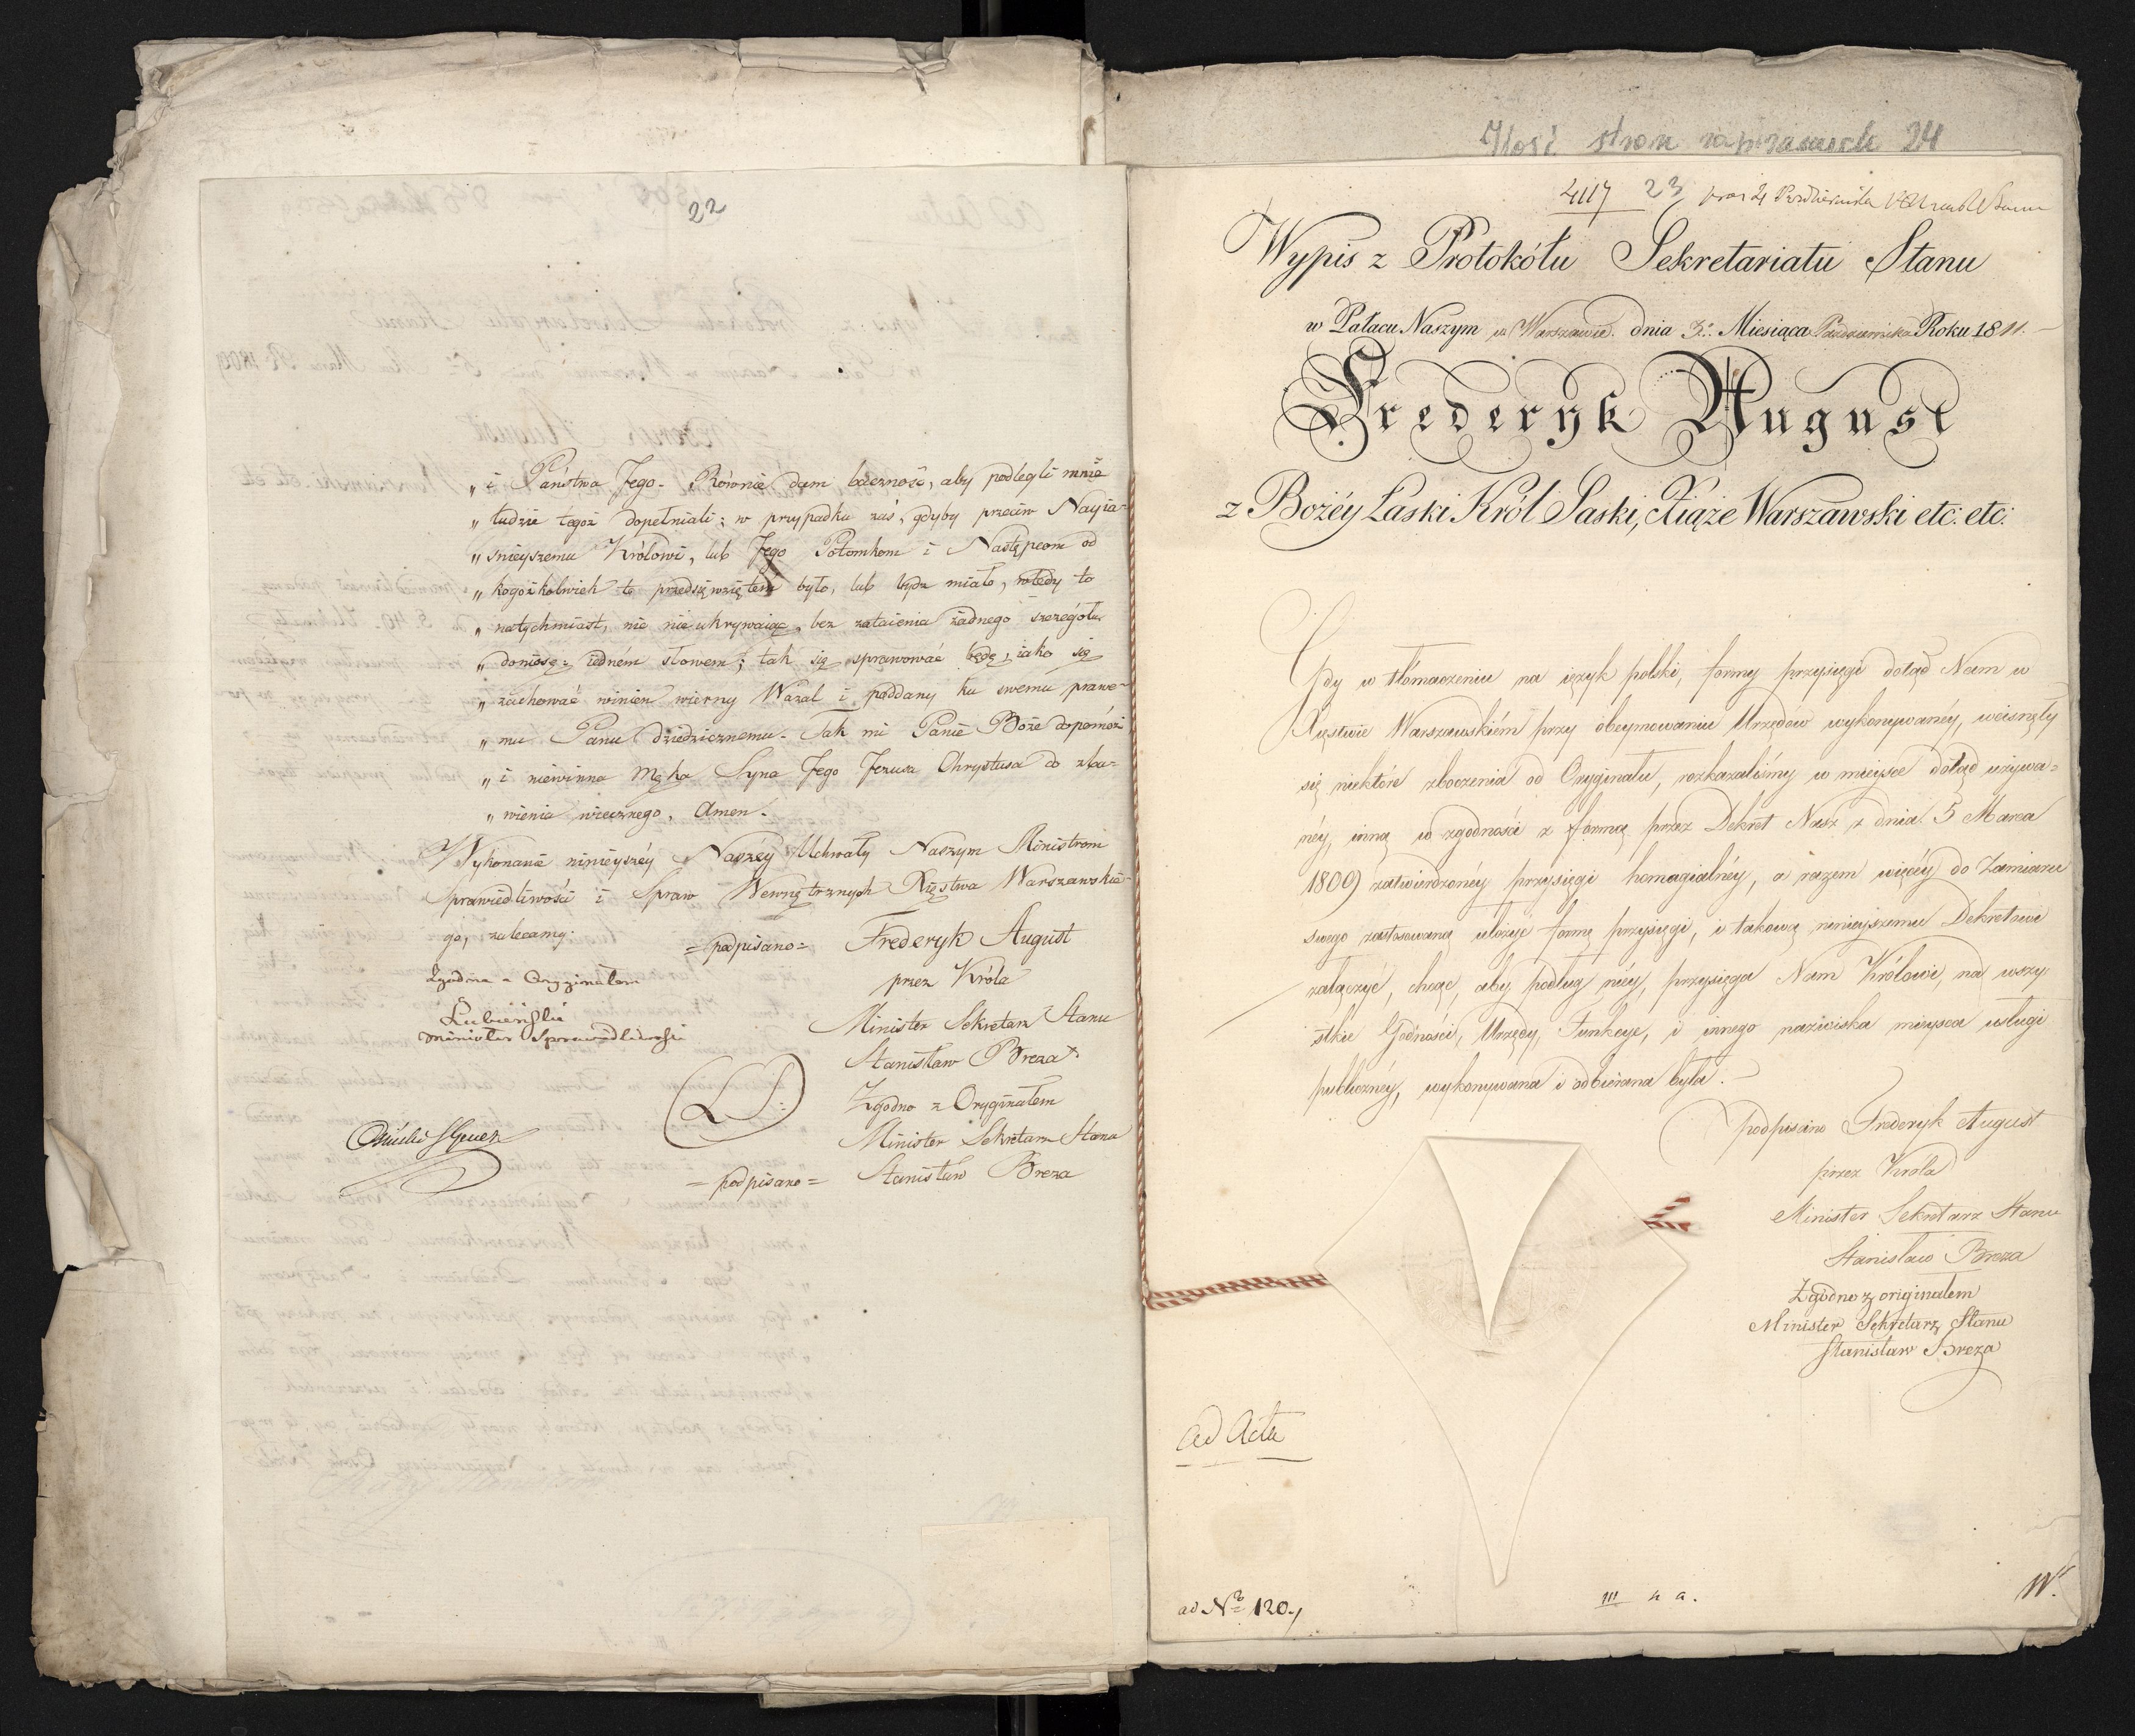 22
„ i Państwa Jego. Równie dam baczność, aby podlegli mnie
„ ludzie tegoż dopełniali; w przypadku zaś, gdyby przeciw Nayia-
„ śnieyszemu Królowi, lub Jego Potomkom i Następcom od
„ kogożkolwiek to przedsięwziętem było, lub bydź miało, wtedy to
„ natychmiast, nic nie ukrywaiąc, bez zataienia żadnego szczegółu
„ doniosę: iedném słowem; tak się sprawować będę, iako się
„ zachować winien wierny Wazal i poddany ku swemu prawe-
„ mu Panu dziedzicznemu. Tak mi Panie Boże dopomóż
„ i niewinna Męka Syna Jego Jezusa Chrystusa do zba-
„ wienia wiecznego, Amen.
Wykonanie ninieyszéy Naszéy Uchwały Naszym Ministrom
Sprawiedliwości i Spraw Wewnętrznych Xięstwa Warszawskie-
go, zalecamy.
= podpisano = Frederyk August
przez Króla
Minister Sekretarz Stanu
Stanisław Breza
Zgodno z Oryginałem
Minister Sekretarz Stanu
= podpisano = Stanisław Breza
Zgodno z Oryginałem
Łubieński
Minister Sprawiedliwości
Ilość stron zapisanych 24
4117 23
Wypis z Protokółu Sekretariatu Stanu
w Pałacu Naszym w Warszawie dnia 3. Miesiąca Października Roku 1811.
Frederyk August
z Bożéy Łaski Król Saski, Xiąże Warszawski etc: etc:
Gdy w tłómaczeniu na ięzyk polski, formy przysięgi dotąd Nam w
Xięstwie Warszawskiém przy obeymowaniu Urzędów wykonywanéy, wcisnęły
się niektóre zboczenia od Oryginału, rozkazaliśmy w mieysce dotąd używa=
néy, inną w zgodności z formą przez Dekret Nasz z dnia 5 Marca
1809 zatwierdzonéy przysięgi homagialnéy, a razem więcéy do Zamiaru
swego zastosowaną ułożyć formę przysięgi, i takową ninieyszemu Dekretowi
załączyć, chcąc, aby podług niéy, przysięga Nam Królowi, na wszy-
stkie Godności, Urzędy, Funkcye, i innego nazwiska mieysca usługi
publicznéy, wykonywana i odbierana była.
podpisano Frederyk August
przez Króla
Minister Sekretarz Stanu
Stanisław Breza
Zgodno z originałem
Minister Sekretarz Stanu
Stanisław Breza
ad Acta
ad No 120.
III n a.